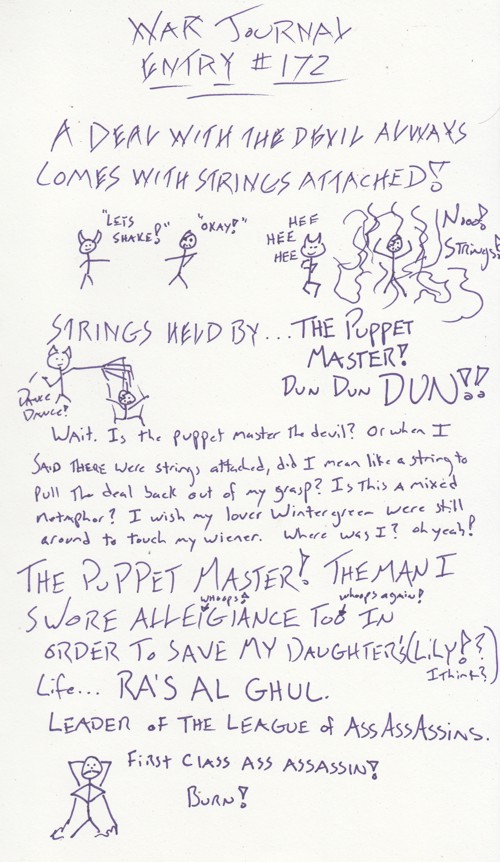 WAR JOURNAL
ENTRY # 172
A DEAL WITH THE DEVIL ALWAYS
COMES WITH STRINGS ATTACHED!
"LETS SHAKE!"
"OKAY!"
HEE
HEE
HEE
Nooo!
Strings!
STRINGS HELD BY... THE PUPPET
MASTER!
DUN DUN DUN!!
DANCE
DANCE!
Wait. Is the puppet master the devil? Or when I
SAID THERE were strings attached, did I mean like a string to
pull the deal back out of my grasp? Is this a mixed
metaphor? I wish my lover Wintergreen were still
around to touch my wiener. Where was I? oh yeah!
THE PUPPET MASTER! THE MAN I
whoops! whoops again!
SWORE ALLEIGIANCE TOO IN
ORDER TO SAVE MY DAUGHTER'S (LILY!?
I think?)
Life... RA'S AL GHUL.
LEADER OF THE LEAGUE of ASSASSASSINS.
FIRST CLASS ASS ASSASSIN!
BURN!